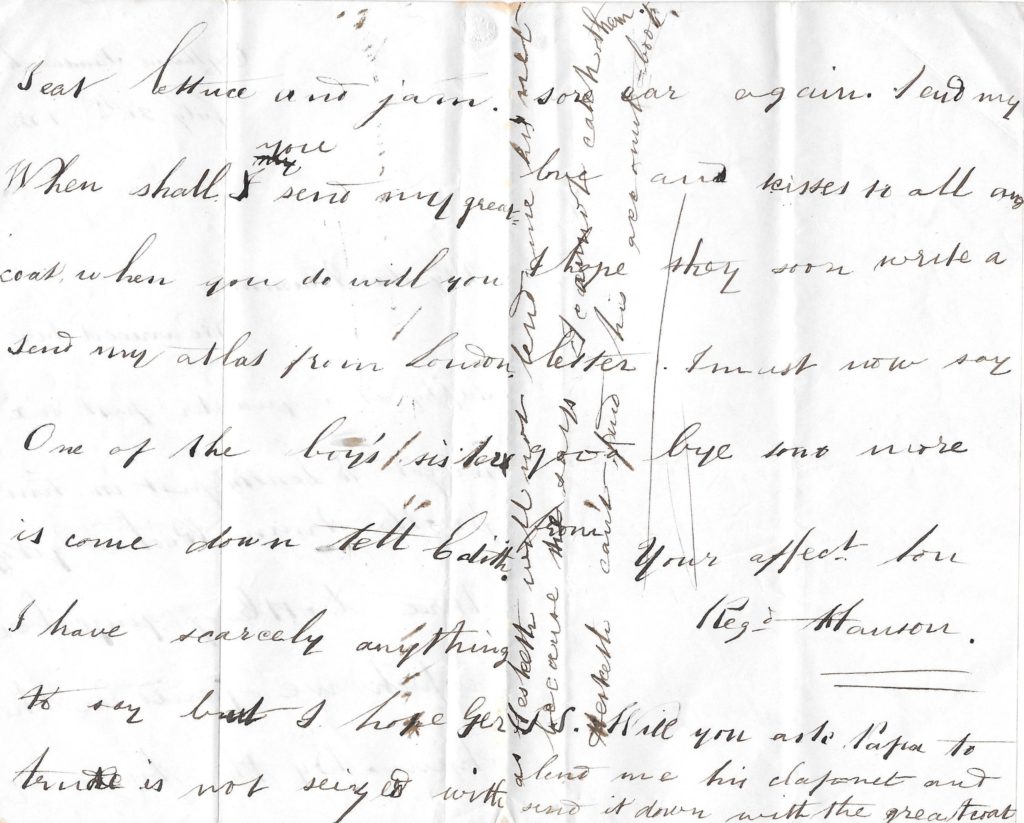 I eat lettuce and jam.
When shall I you send my great=
coat, when you do will you
send my atlas from London.
One of the boy's sisters
is come down tell Edith.
I have scarcely anything
to say but I hope Ger
trude is not seized with
sore ear again. I end my
love and kisses to all and
I hope they soon write a
letter. I must now say
good bye so no more
from Your affect. Son
Regd. Hanson.
P.S. Will you ask Papa to
lend me his clapnet and
send it down with the greatcoat
as Hesketh will not lend me his net
because he says I cannot catch them
Hesketh can't find his account-book.